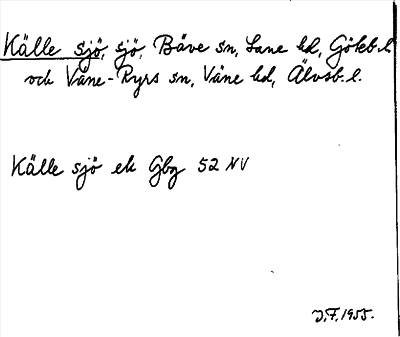 Källe sjö, sjö, Bäve sn, Lane hd, Göteb. l
och Väne-Ryrs sn, Väne hd, Älvsb. l.
Källe sjö ek Gbg 52 NV
J.F. 1955.